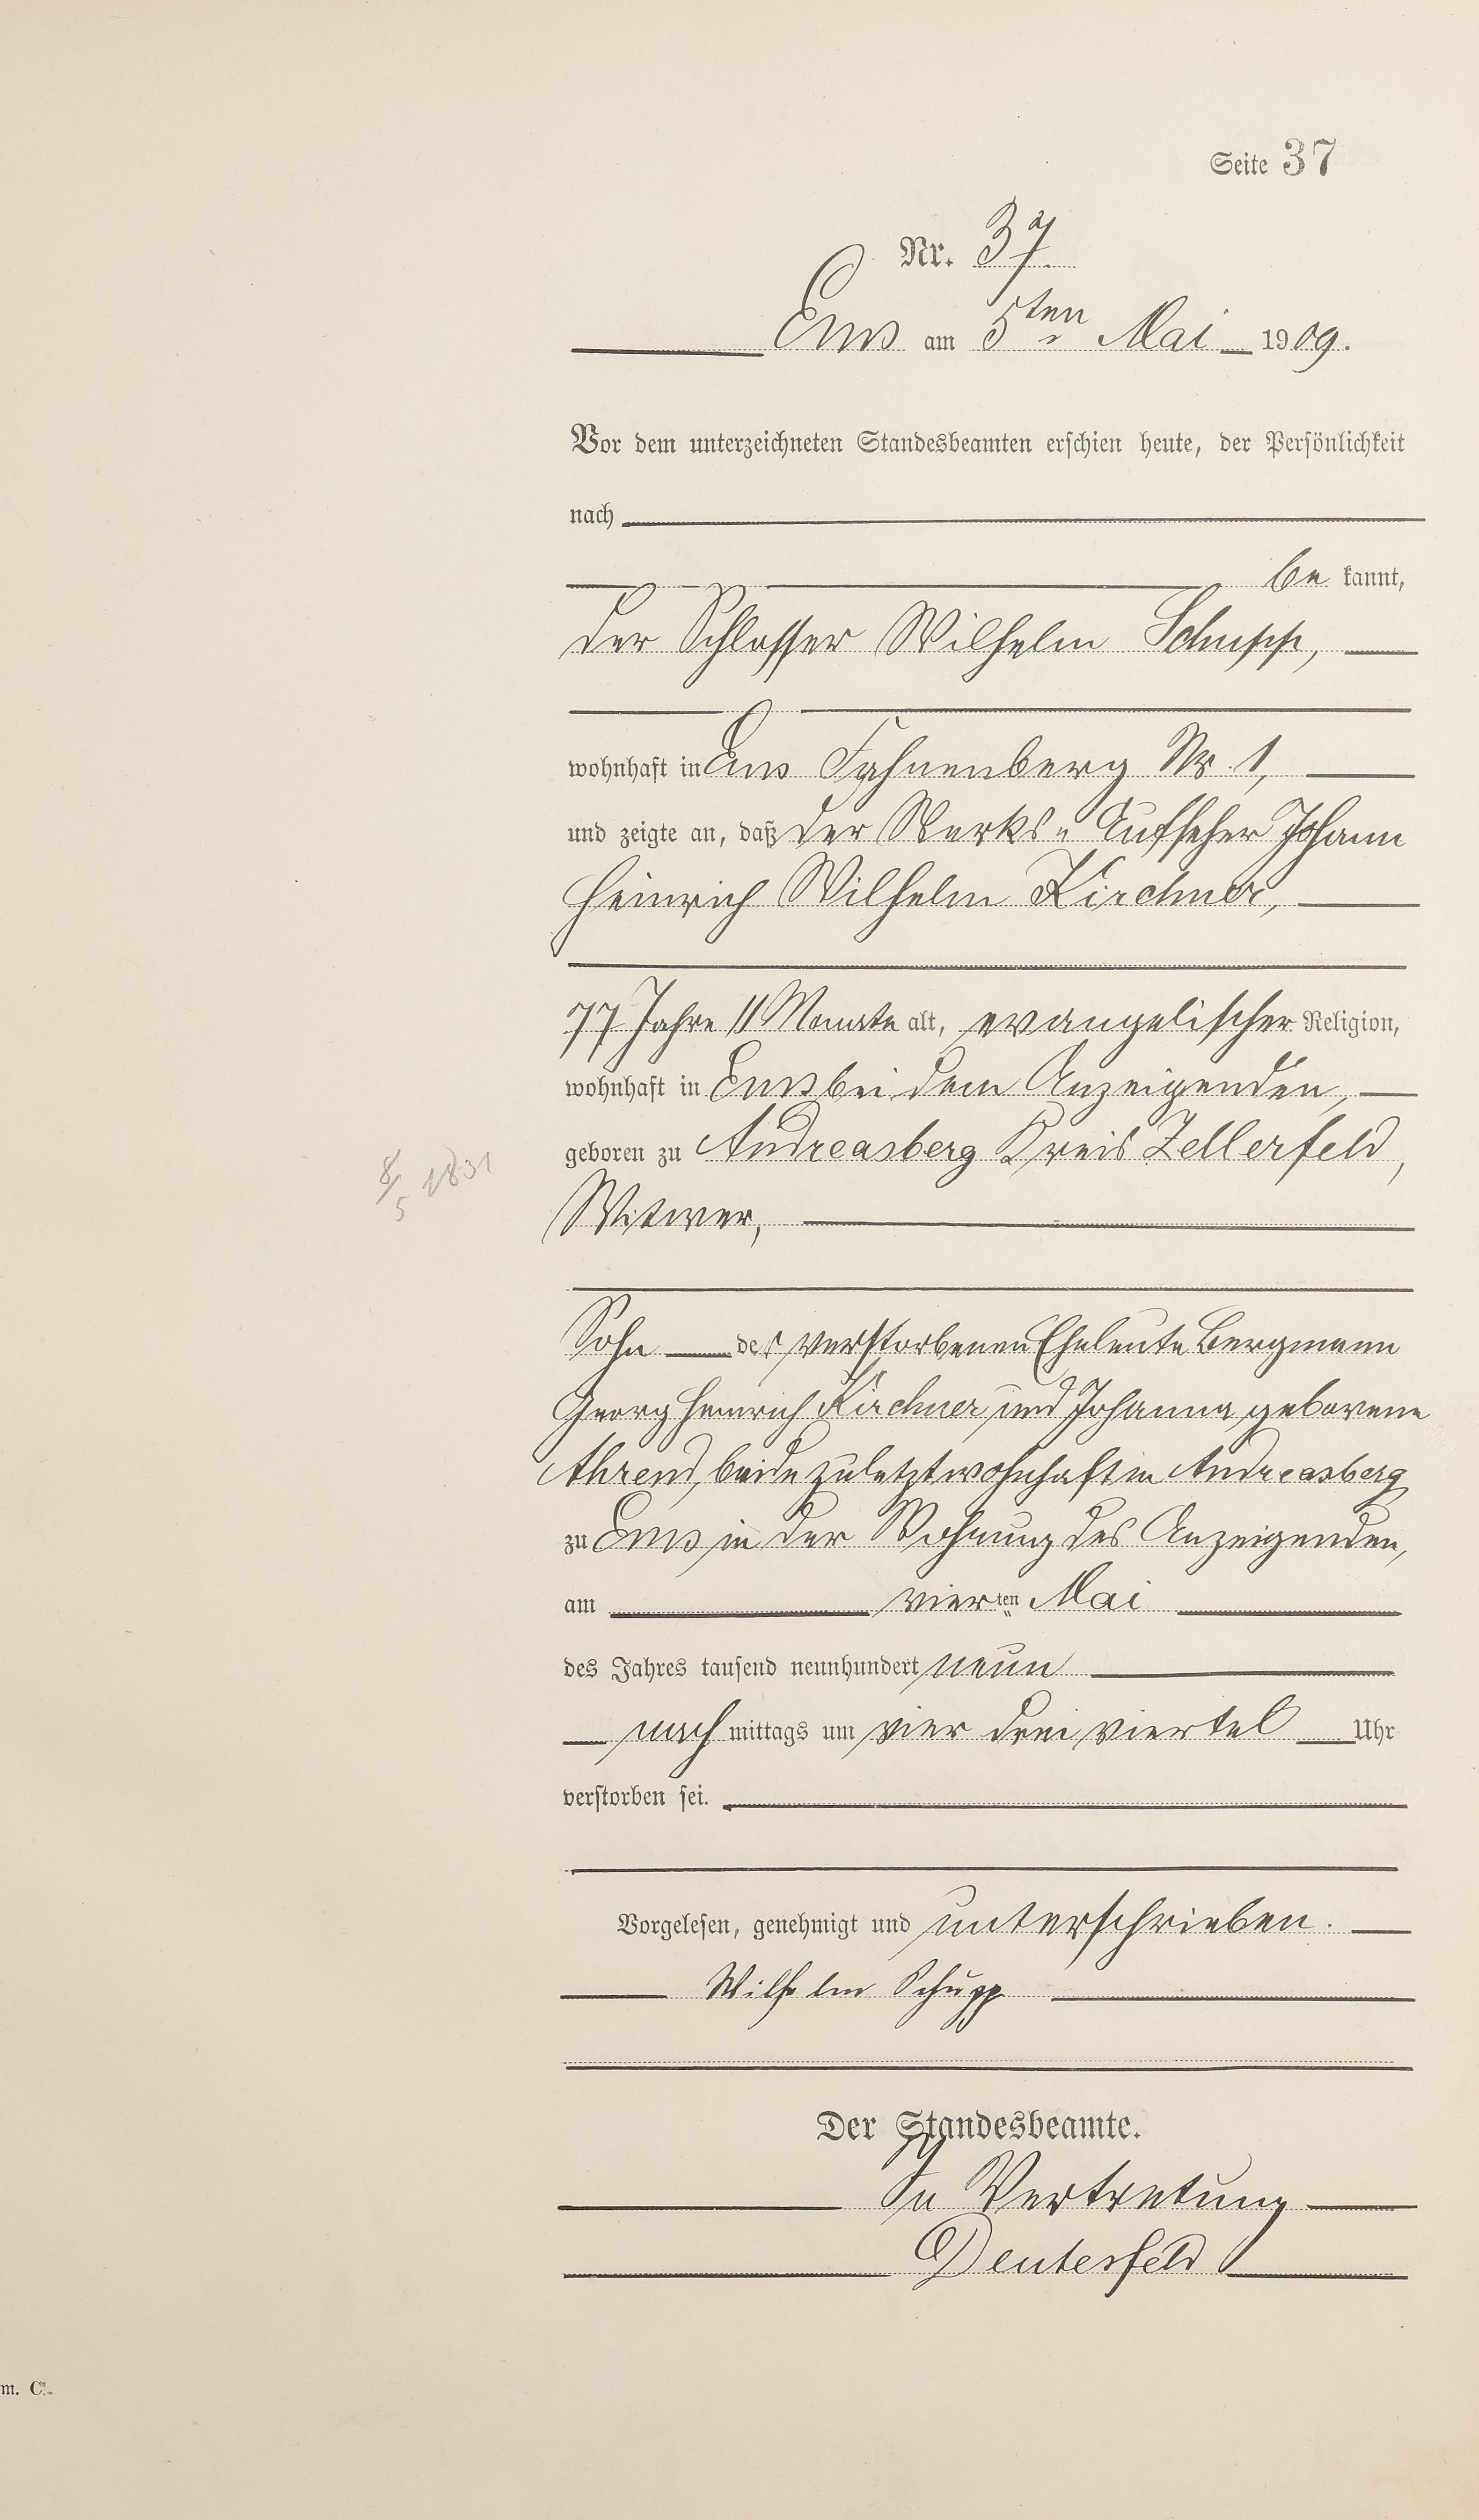 Seite 37
Nr. 37
Ems am 5ten Mai 1909.
Vor dem unterzeichneten Standesbeamten erschien heute, der Persönlichkeit
nach
be kannt,
der Schlosser Wilhelm Schupp,
wohnhaft in Ems Fahnenberg Nr. 1,
und zeigte an, daß der Werks-Aufseher Johann
Heinrich Wilhelm Kirchner,
77 Jahre 11 Monate alt, evangelischer Religion,
wohnhaft in Ems bei dem Anzeigenden,
geboren zu Andreasberg Kreis Zellerfeld,
8/5 1831
Witwer,
Sohn der verstorbenen Eheleute Bergmann
Georg Heinrich Kirchner und Johanna geborene
Ahrend, beide zuletzt wohnhaft in Andreasberg
zu Ems in der Wohnung des Anzeigenden,
am vierten Mai
des Jahres tausend neunhundert neun
nach mittags um vier drei viertel Uhr
verstorben sei.
Vorgelesen, genehmigt und unterschrieben.
Wilhelm Schupp
Der Standesbeamte.
In Vertretung
Deutesfeld
m. C.